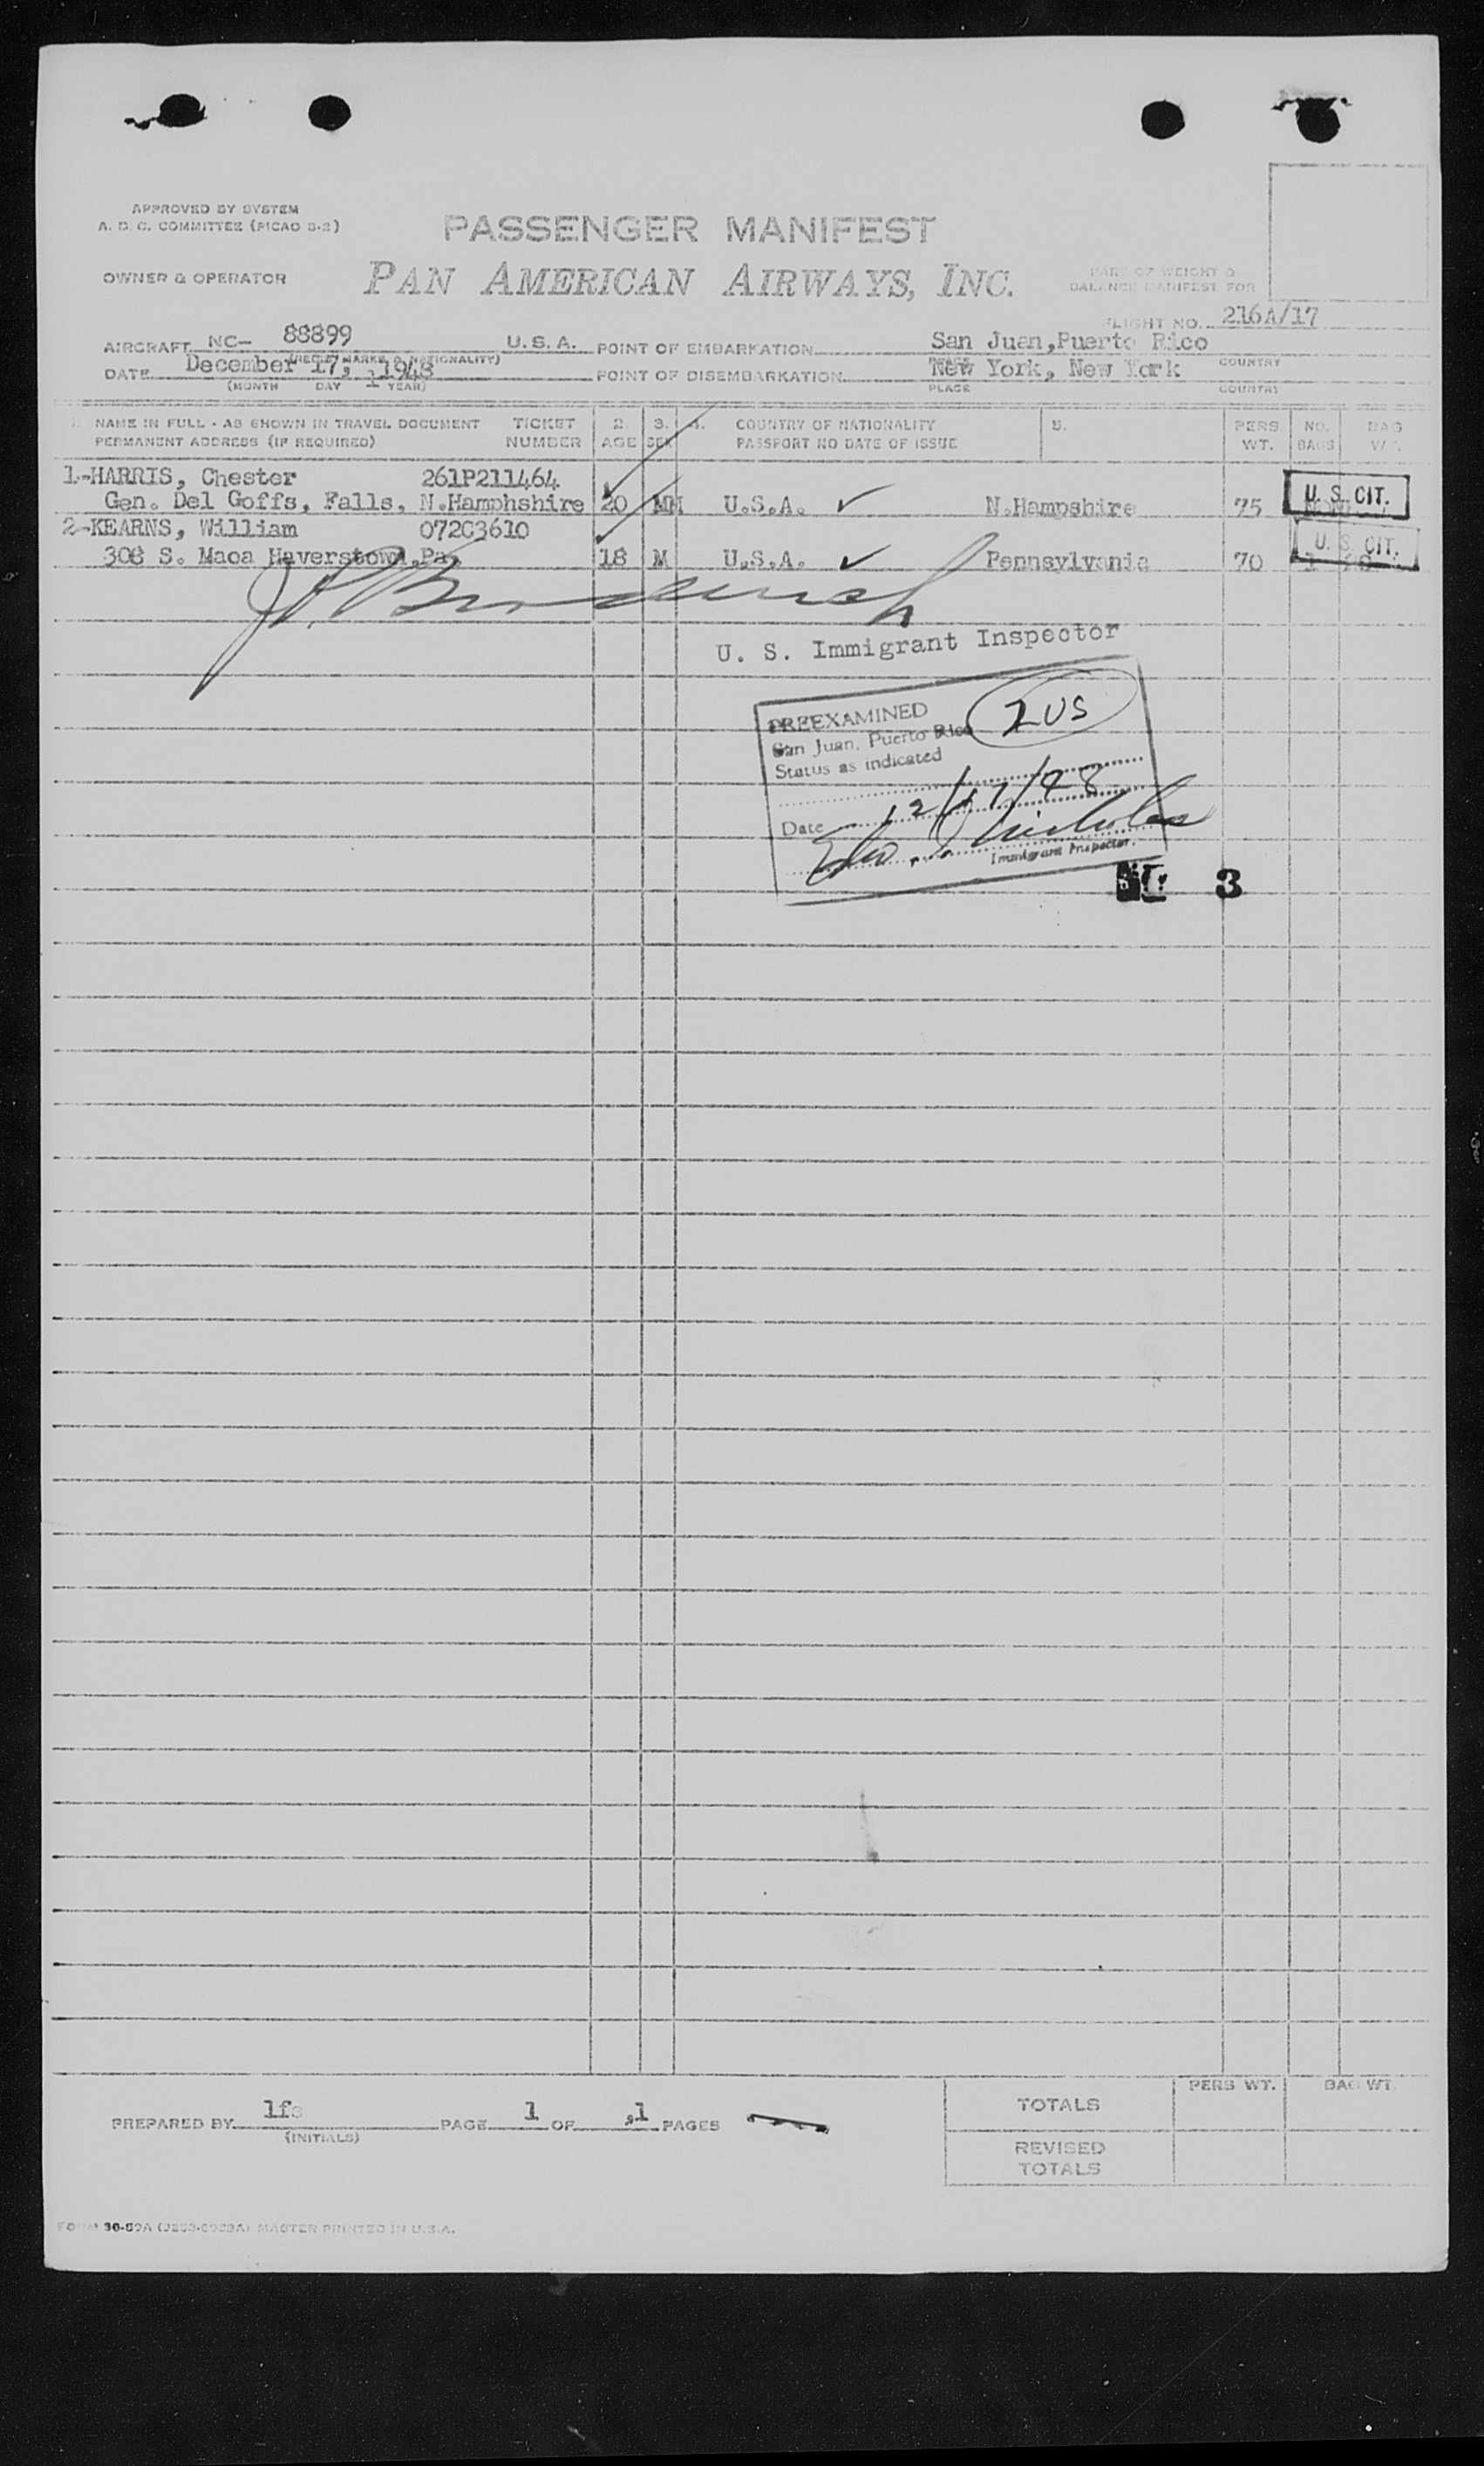 APPROVED BY SYSTEM
A. D. C. COMMITTEE (PICAO S-2)
PASSENGER MANIFEST
OWNER & OPERATOR
PAN AMERICAN AIRWAYS, INC.
PART OF WEIGHT &
BALANCE MANIFEST FOR
FLIGHT NO. 216A/17
AIRCRAFT NC- 88899 U.S.A. POINT OF EMBARKATION San Juan,Puerto Rico
(REGIST MARKS & NATIONALITY) PLACE COUNTRY
DATE December 17, 1948 POINT OF DISEMBARKATION New York, New York
(MONTH DAY YEAR) PLACE COUNTRY
1. NAME IN FULL - AS SHOWN IN TRAVEL DOCUMENT TICKET 2. 3. 4. COUNTRY OF NATIONALITY 5. PERS. NO. BAG
PERMANENT ADDRESS (IF REQUIRED) NUMBER AGE SEX PASSPORT NO DATE OF ISSUE WT. BAGS WT.
1-HARRIS, Chester 261P211464
Gen. Del Goffs, Falls, N.Hamphshire 20 M U.S.A. N.Hampshire 75 U. S. CIT.
2-KEARNS, William 072C3610
308 S. Maoa Haverstown,Pa. 18 M U.S.A. Pennsylvania 70 U. S. CIT.
U. S. Immigrant Inspector
PREEXAMINED 2 US
San Juan, Puerto Rico
Status as indicated
Date 12/17/48
Immigrant Inspector.
3
PREPARED BY lfs PAGE 1 OF 1 PAGES
(INITIALS)
PERS WT. BAG WT.
TOTALS
REVISED
TOTALS
FORM 36-59A MASTER PRINTED IN U.S.A.